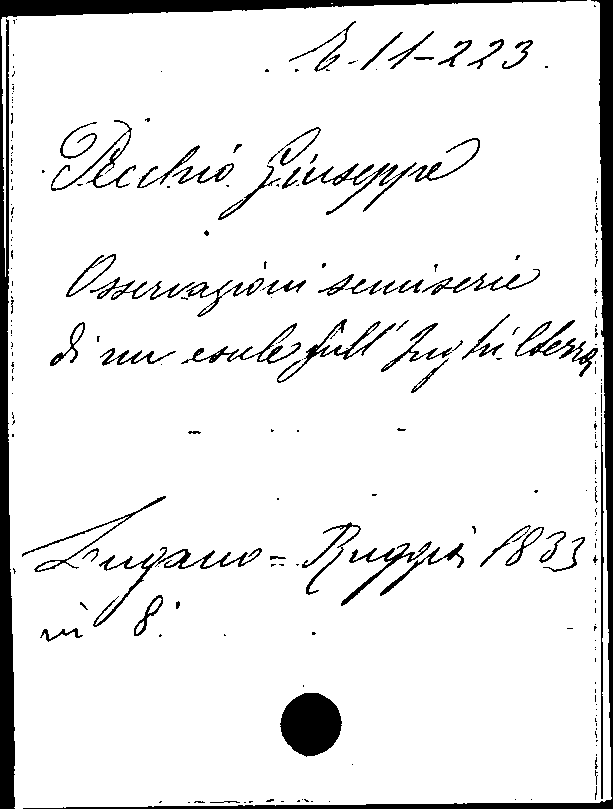 E-11-223.
Pecchio Giuseppe
Osservazioni semiserie
di un esule sull' Inghilterra
Lugano = Ruggia 1833
in 8°